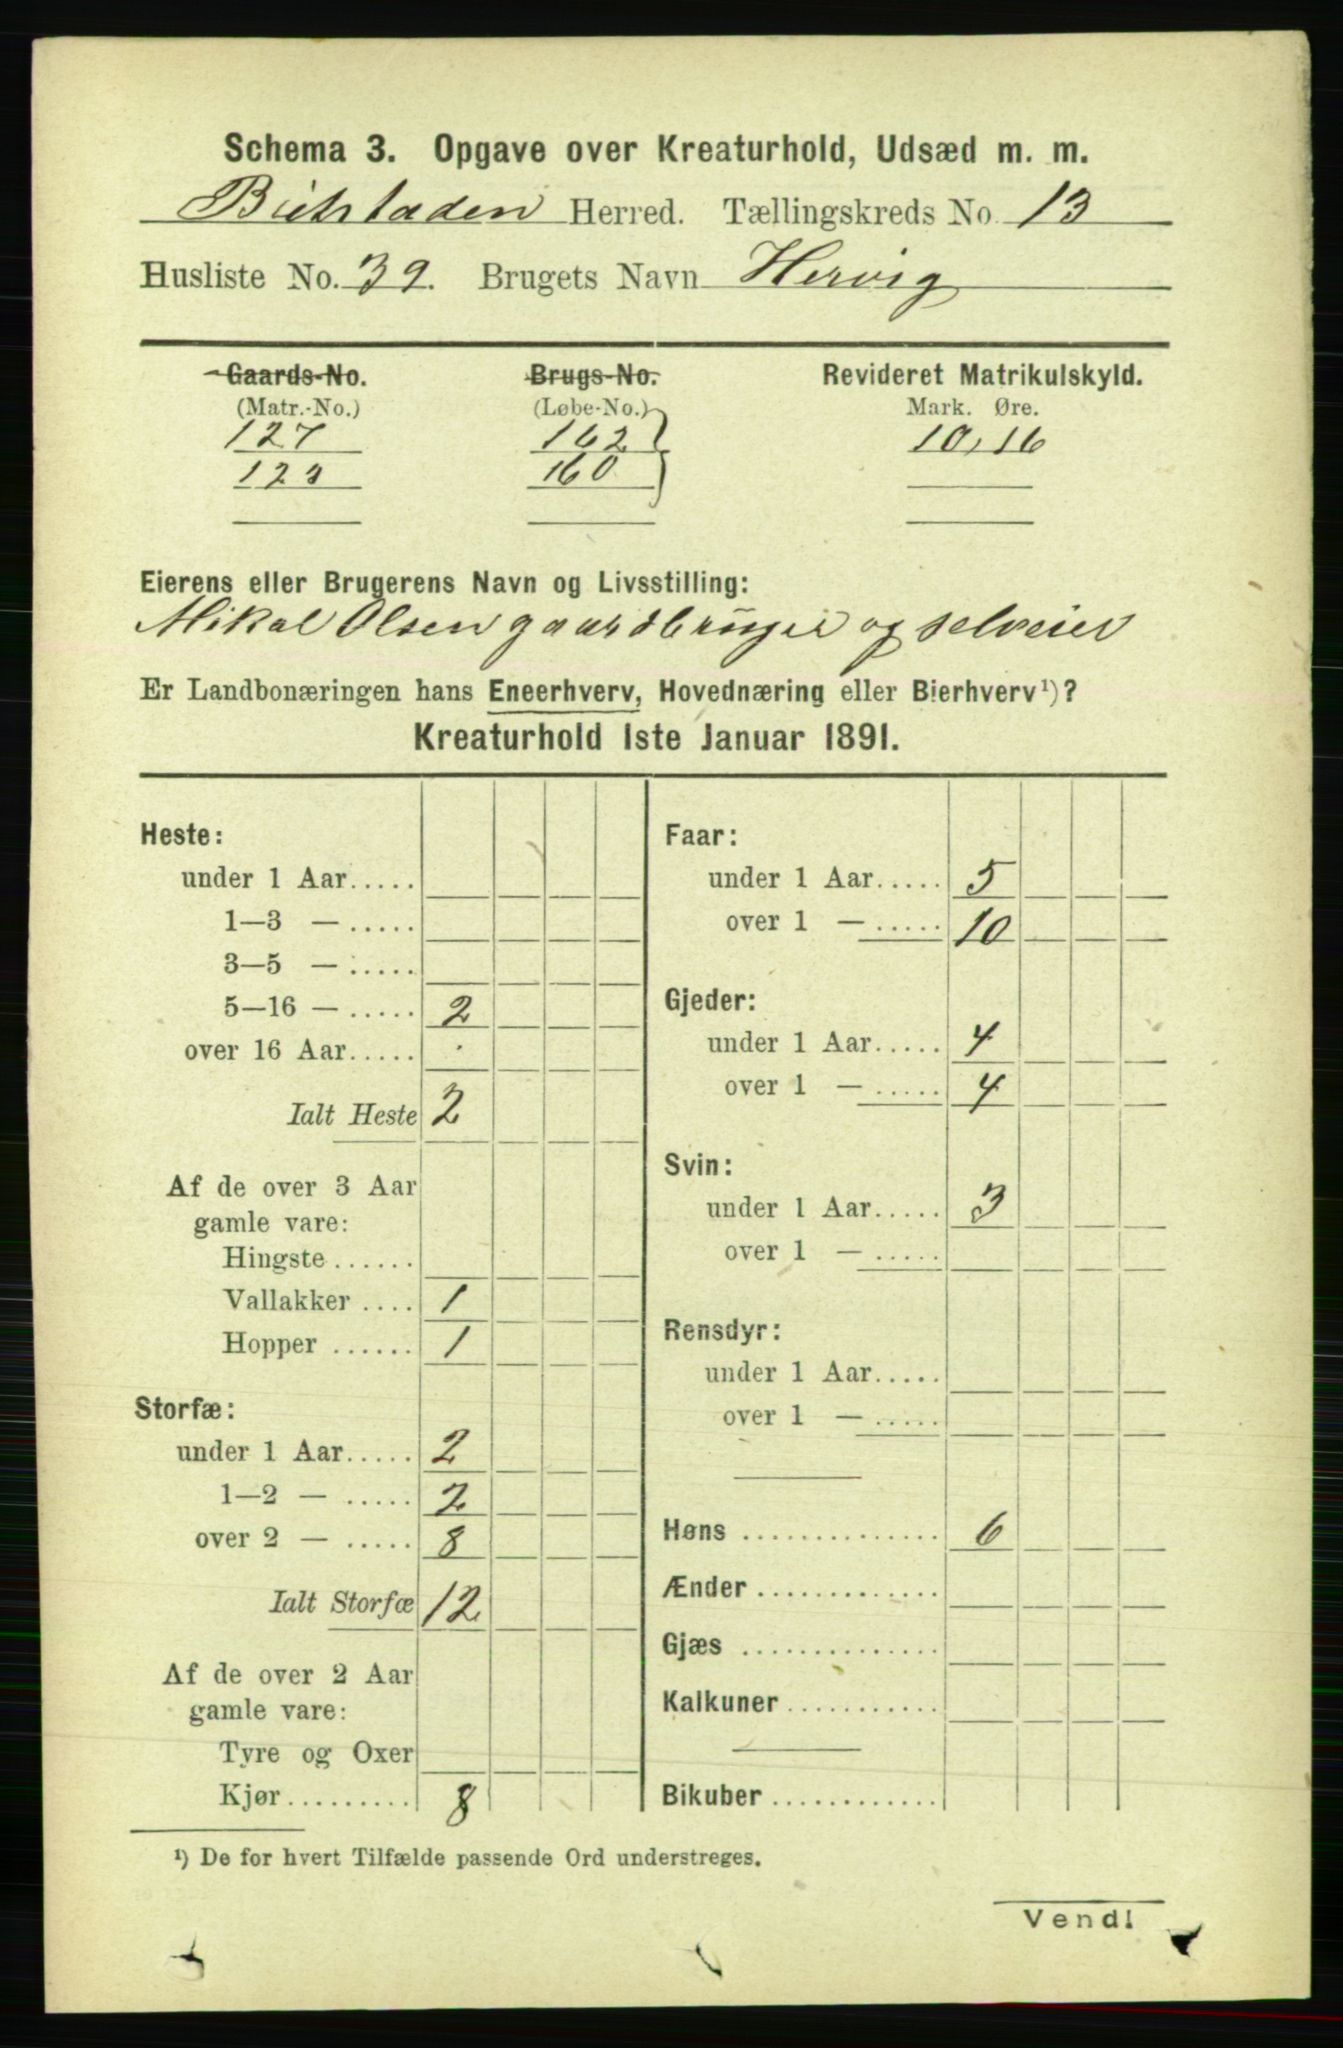 Schema 3. Opgave over Kreaturhold, Udsæd m. m.
Herred. Tællingskreds No. 13
Husliste No. 39. Brugets Navn Hervig
Gaards-No. Brugs-No. Revideret Matrikulskyld.
(Matr.-No.) (Løbe-No.) Mark. Øre.
127 162 10,16
160
Eierens eller Brugerens Navn og Livsstilling:
Mikal Olsen gaardbruger og selveier
Er Landbonæringen hans Eneerhverv, Hovednæring eller Bierhverv¹)?
Kreaturhold 1ste Januar 1891.
Heste:
under 1 Aar.....
1—3 — .....
3—5 — .....
5—16 — ..... 2
over 16 Aar.....
Ialt Heste 2
Af de over 3 Aar
gamle vare:
Hingste ......
Vallakker .... 1
Hopper ...... 1
Storfæ:
under 1 Aar..... 2
1—2 — ..... 2
over 2 — ..... 8
Ialt Storfæ 12
Af de over 2 Aar
gamle vare:
Tyre og Oxer
Kjør......... 8
Faar:
under 1 Aar..... 5
over 1 — ..... 10
Gjeder:
under 1 Aar..... 4
over 1 — ..... 4
Svin:
under 1 Aar..... 3
over 1 — .....
Rensdyr:
under 1 Aar.....
over 1 — .....
Høns .............. 6
Ænder .............
Gjæs ..............
Kalkuner...........
Bikuber ............
¹) De for hvert Tilfælde passende Ord understreges.
Vend!